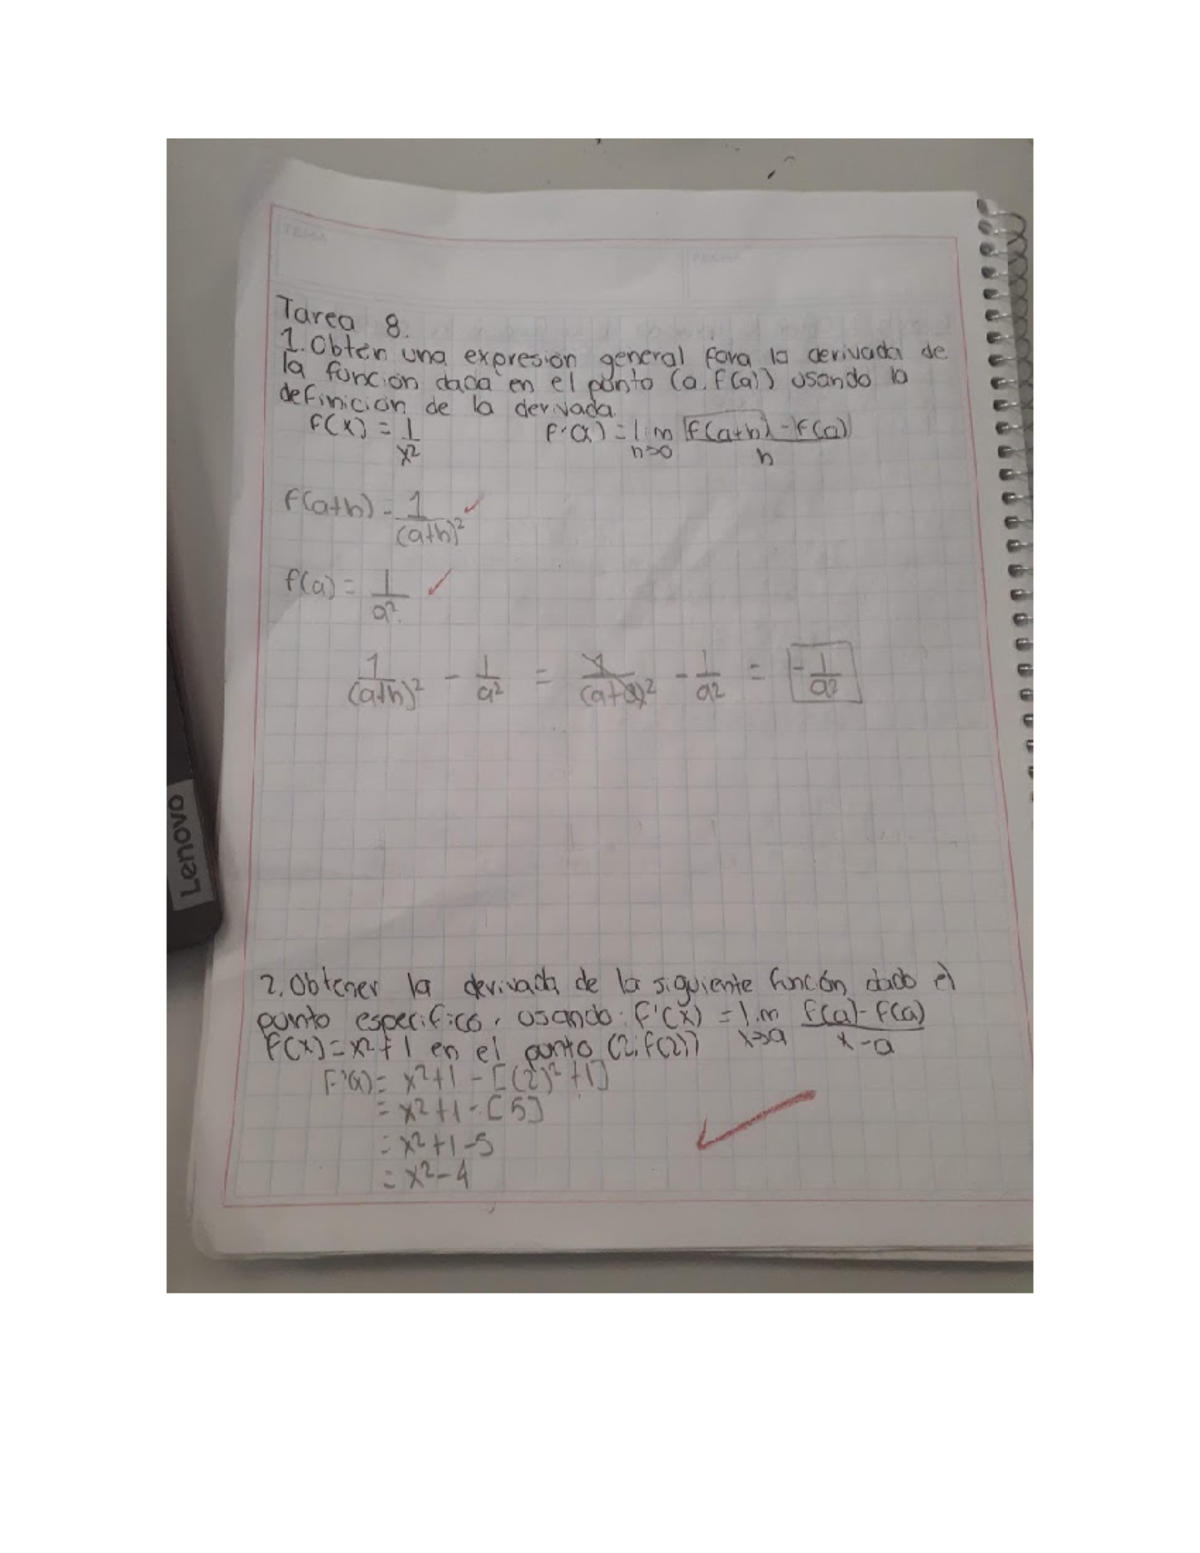 TEMA
FECHA
Tarea 8.
1. Obten una expresión general para la derivada de
la funcion dada en el punto (a, f(a)) usando la
definicion de la derivada.
f(x) = 1/x² f'(x) = lim h→0 f(a+h) - f(a) / h
f(a+h) = 1/(a+h)² ✓
f(a) = 1/a² ✓
1/(a+h)² - 1/a² = 1/(a+0)² - 1/a² = - 1/a²
2. Obtener la derivada de la siguiente función, dado el
punto especifico, usando: f'(x) = lim x→a f(a) - f(a) / x - a
f(x) = x² + 1 en el punto (2, f(2))
f'(x) = x² + 1 - [(2)² + 1]
= x² + 1 - [5]
= x² + 1 - 5
= x² - 4
Lenovo